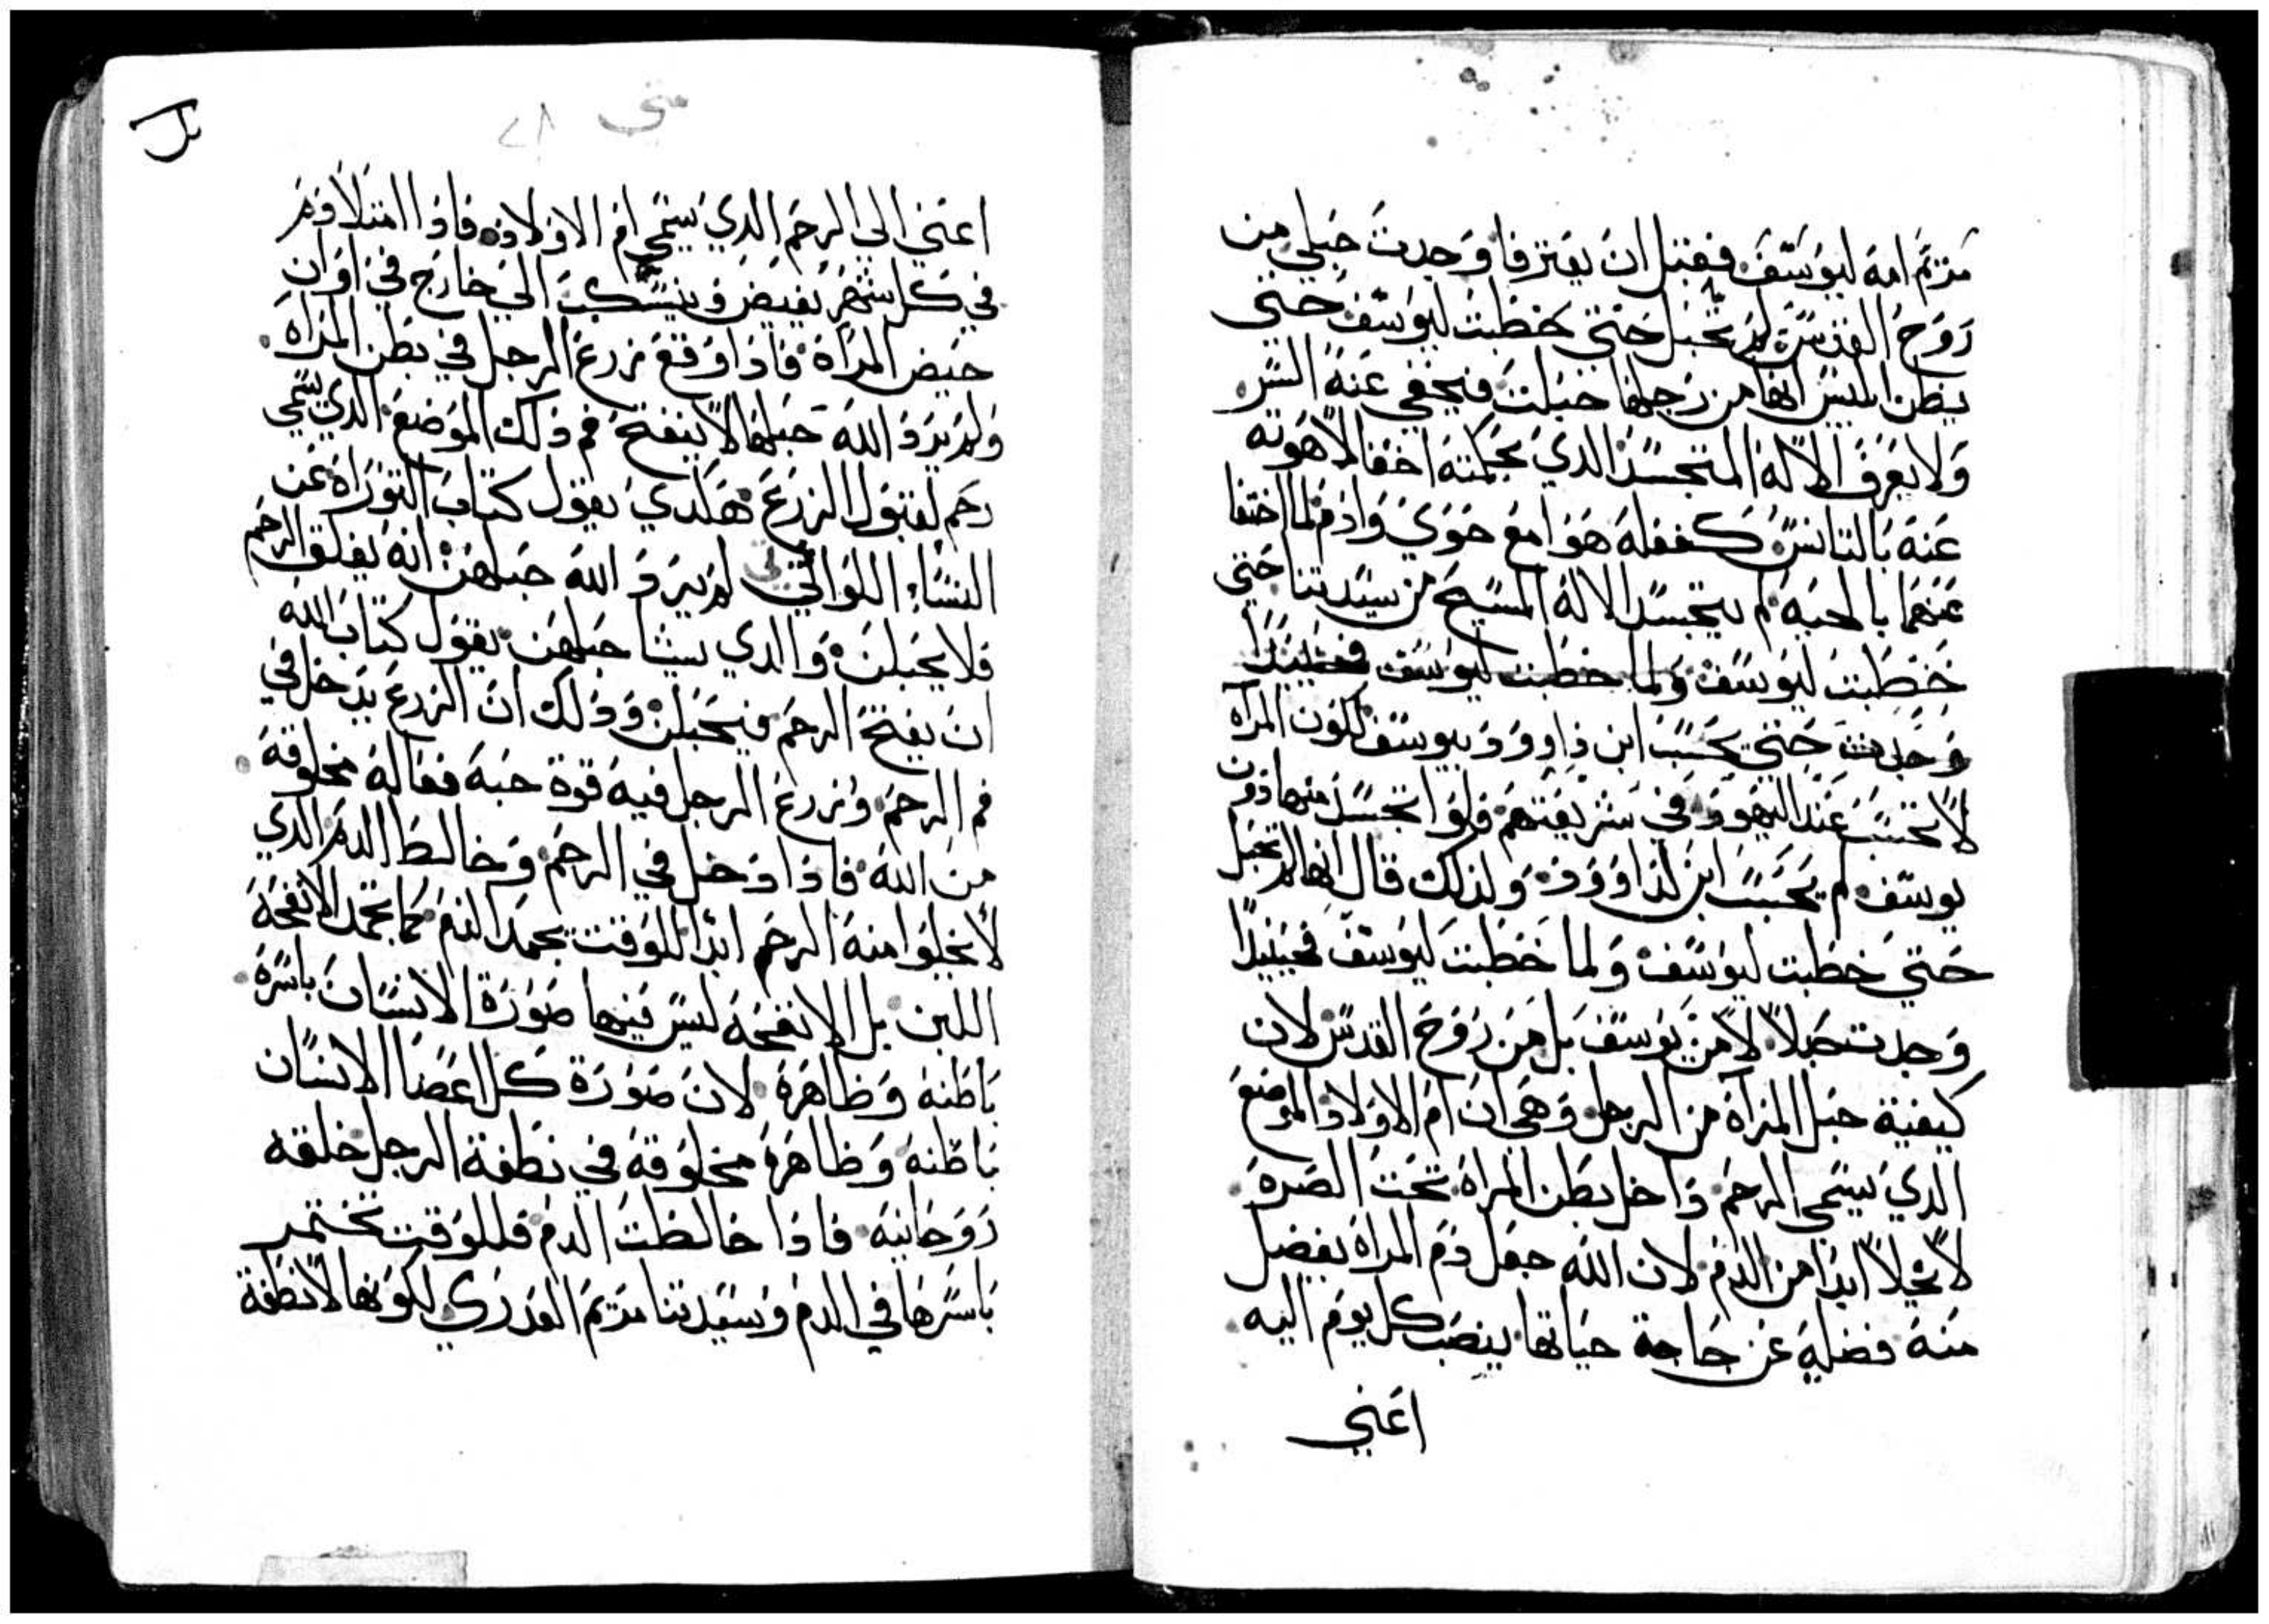 مريم امه ليوسف فقبل ان يعترفا وجدت حبلي من
روح القدس لم تحبل حتي خطبت ليوسف حتي
يظن ابليس انها من رجلها حبلت فيخفي عنه السر
ولا يعرف الاله المتجسد الذي بحكمته اخفا لاهوته
عنه بالتانس كفعله هوا مع حوي وادم لما اختفا
عنهما بالحيه لم يتجسد الاله المسيح من سيدتنا حتي
خطبت ليوسف ولما خطبت ليوسف فحينيذا
وجدت حتي يحسب ابن داوود بيوسف لكون المرآه
لا تحسب عند اليهود في شريعتهم ولو اتجسد منها دون
يوسف لم يحسب ابن لداوود ولذلك قال انها لم تحبل
حتي خطبت ليوسف ولما خطبت ليوسف فحينيذا
وجدت حبلا لا من يوسف بل من روح القدس لان
كيفية حبل المرآة من الرجل وهي ان ام الاولاد الموضع
الذي يسمي الرحم داخل بطن المراه تحت الصره
لا يخلا ابدا من الدم لان الله جعل دم المراه يفضل
منه فضله عن حاجة حياتها ينصب كل يوم اليه
اعني
متي ٢٨
اعني الي الرحم الذي يسمي ام الاولاد فاذا امتلا ودم
في كل شهر يفيض وينسكب الي خارج في اوان
حيض المراة فاذا وقع زرع الرجل في بطن المراه
ولم يرد الله حبلها لا ينفتح فم ذلك الموضع الذي يسمي
رحم لقبول الزرع هكدي يقول كتاب التوراه عن
النساء اللواتي لم يرد الله حبلهن انه يغلق الرحم
فلا يحبلن والذي يشا حبلهن يقول كتاب الله
ان يفتح الرحم فيحبلن وذلك ان الزرع يدخل في
فم الرحم وزرع الرجل فيه قوة حيه فعاله مخلوقه
من الله فاذا دخل في الرحم وخالط الدم الذي
لا يخلوا منه الرحم ابدا للوقت يجمد الدم كما تجمد الانفحه
اللبن بل الانفحه ليس فيها صورة الانسان باسره
باطنه وظاهره لان صورة كل اعضا الانسان
باطنه وظاهره مخلوقه في نطفة الرجل خلقه
روحانيه فاذا خالطت الدم فللوقت تختمر
باسرها في الدم وسيدتنا مريم العدري لكونها لا نطفة